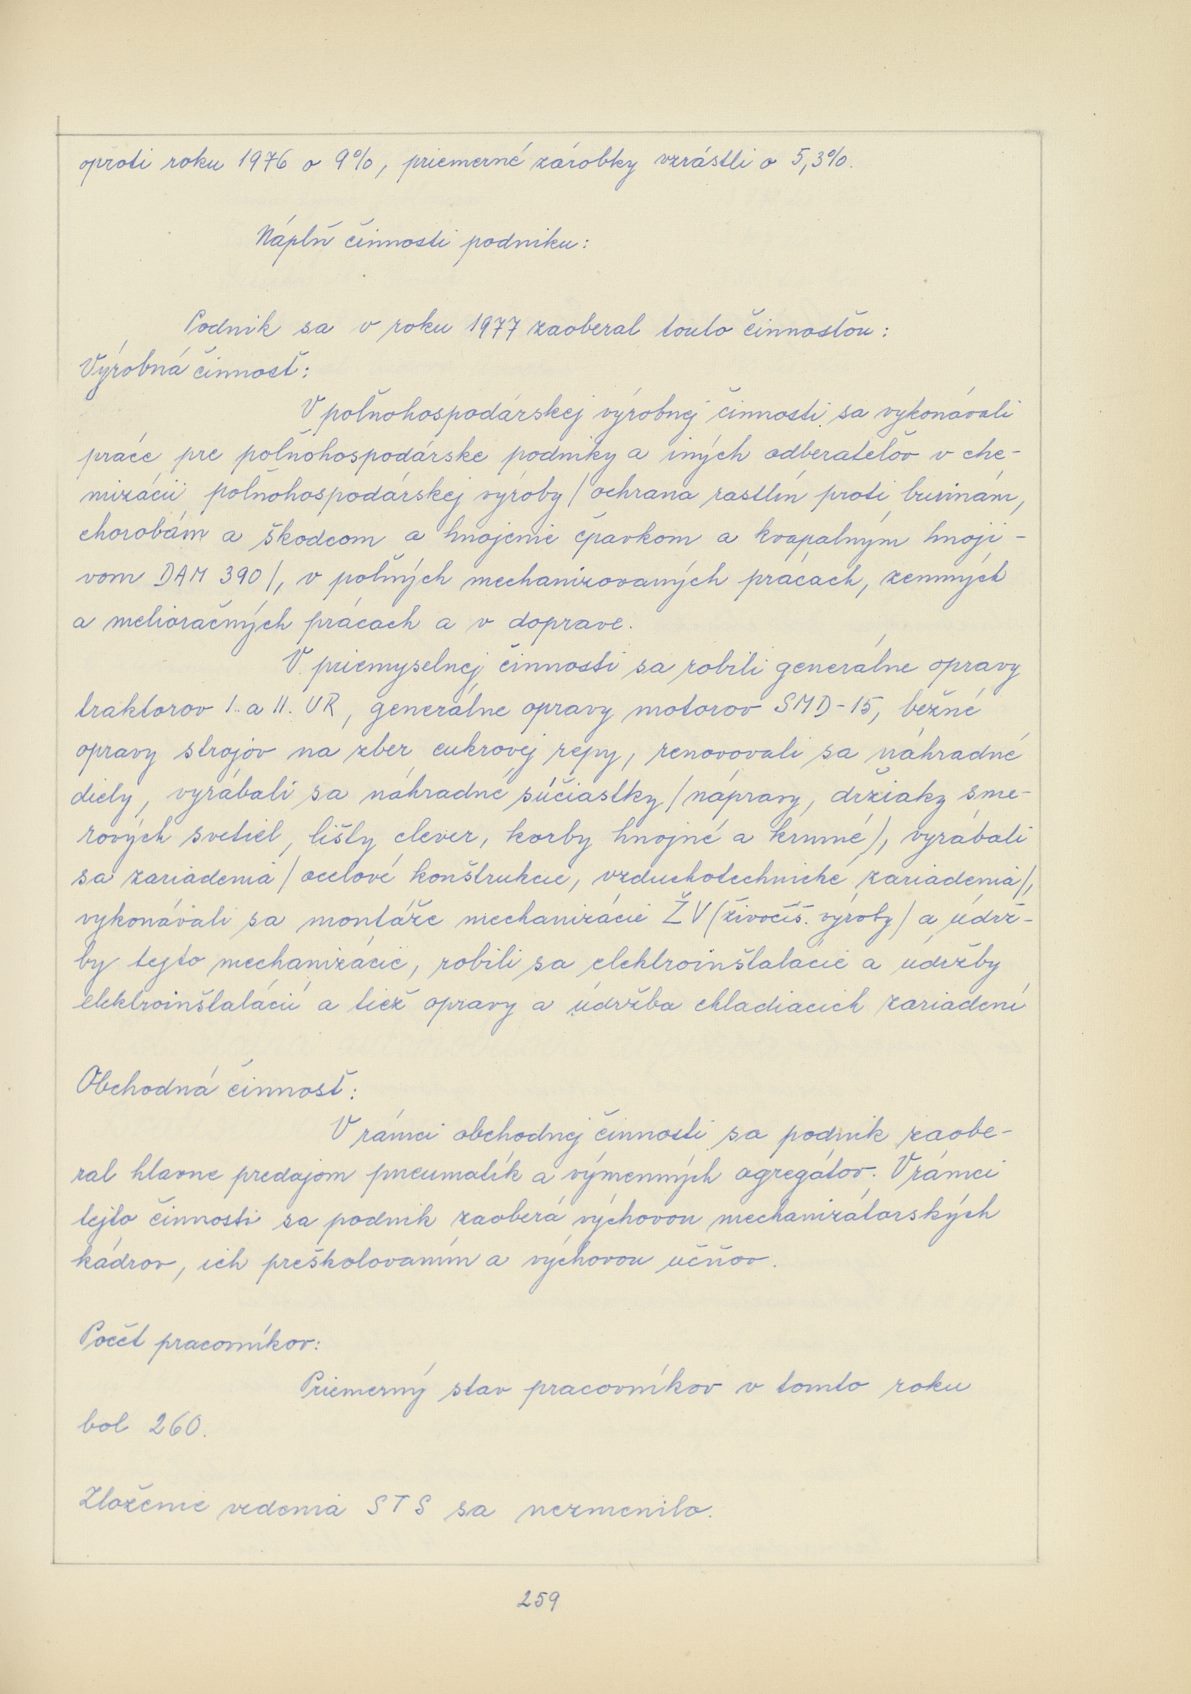 oproti roku 1976 o 9%, priemerné zárobky vzrástli o 5,3%.
Náplň činnosti podniku:
Podnik sa v roku 1977 zaoberal touto činnosťou:
Výrobná činnosť:
V poľnohospodárskej výrobnej činnosti sa vykonávali
práce pre poľnohospodárske podniky a iných odberateľov v che-
mizácii poľnohospodárskej výroby /ochrana rastlín proti burinám,
chorobám a škodcom a hnojenie čpavkom a kvapalným hnoji-
vom DAM 390/, v poľných mechanizovaných prácach, zemných
a melioračných prácach a v doprave.
V priemyselnej činnosti sa robili generálne opravy
traktorov I. a II. UR, generálne opravy motorov SMD-15, bežné
opravy strojov na zber cukrovej repy, renovovali sa náhradné
diely, vyrábali sa náhradné súčiastky /nápravy, držiaky sme-
rových svetiel, lišty clever, korby hnojné a krmné/, vyrábali
sa zariadenia /ocelové konštrukcie, vzduchotechnické zariadenia/,
vykonávali sa montáže mechanizácie ŽV (živočíš. výroby) a údrž-
by tejto mechanizácie, robili sa elektroinštalácie a údržby
elektroinštalácií a tiež opravy a údržba chladiacich zariadení
Obchodná činnosť:
V rámci obchodnej činnosti sa podnik zaobe-
ral hlavne predajom pneumatík a výmenných agregátov. V rámci
tejto činnosti sa podnik zaoberá výchovou mechanizátorských
kádrov, ich preškolovaním a výchovou učňov.
Počet pracovníkov:
Priemerný stav pracovníkov v tomto roku
bol 260.
Zloženie vedenia STS sa nezmenilo.
259